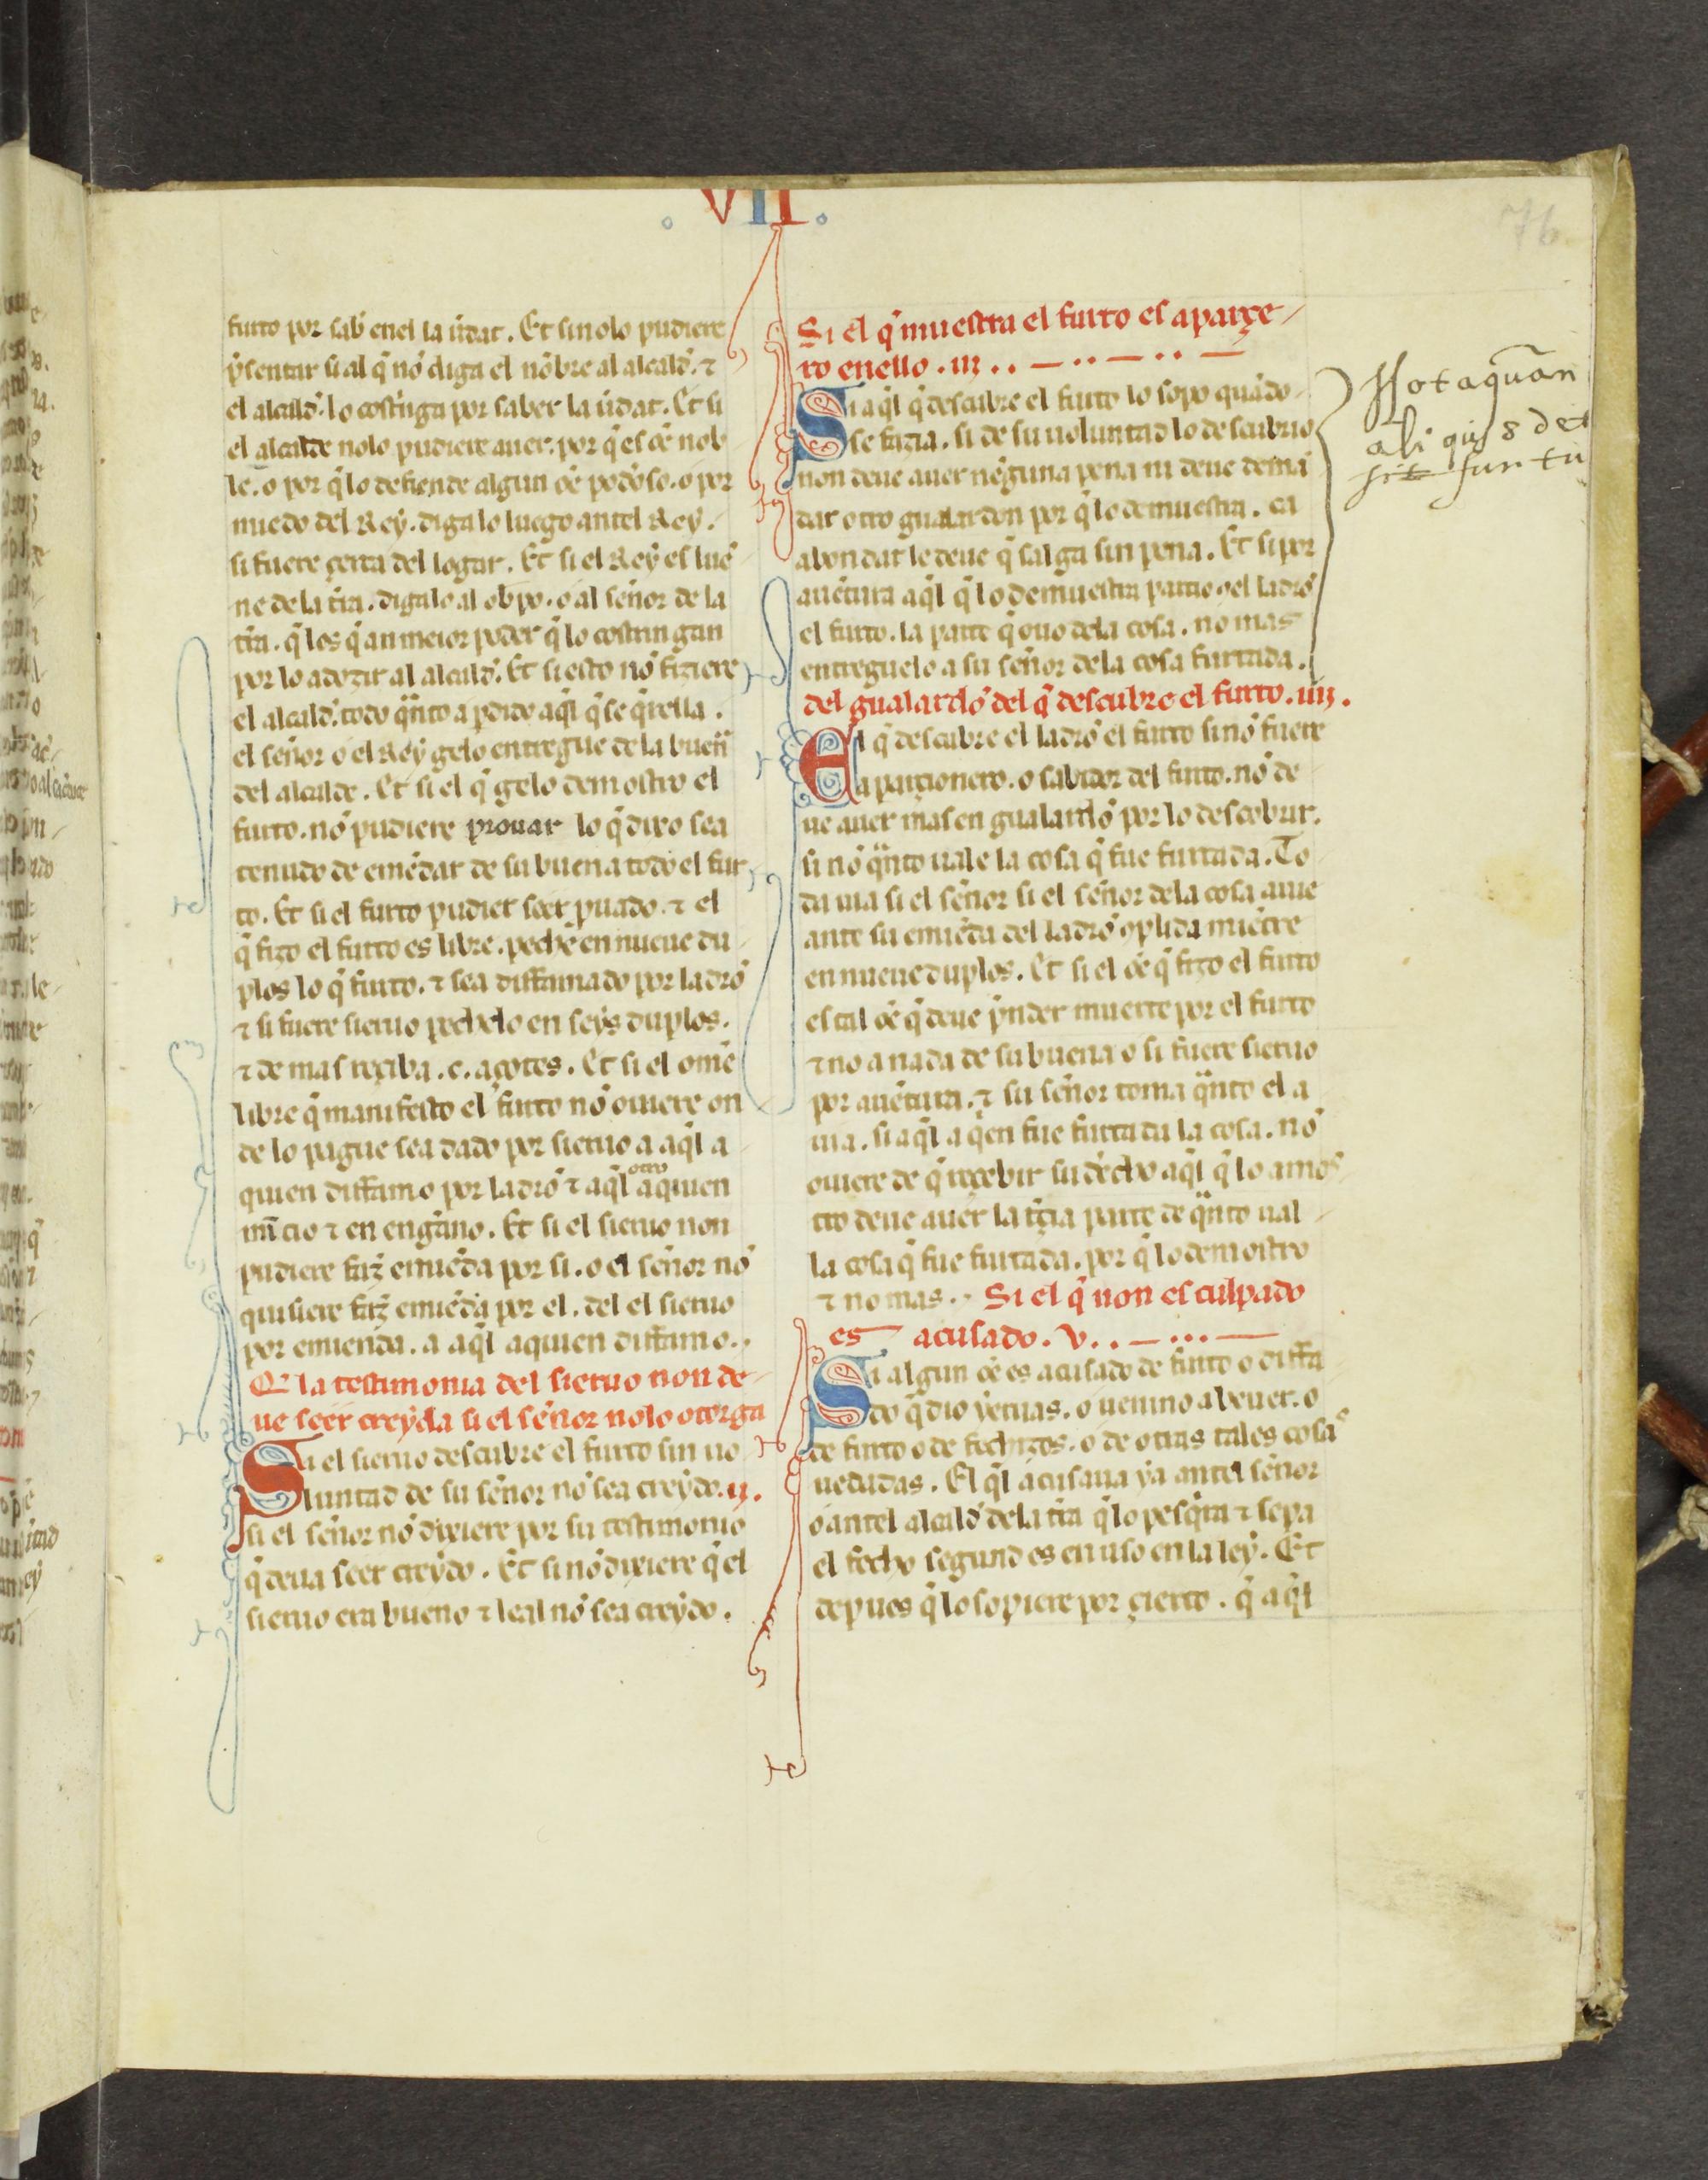 .VII.
76
furto por sab' enel la u'dat. Et sinolo pudiere
p'sentar si al q̃ nõ diga el nõbre al alcald'. ⁊
el alcald'. lo costr̃nga por saber la u'dat. Et si
el alcalde nolo pudiere auer. por q̃ es oẽ nob
le. o por q̃ lo defiende algun oẽ podẽso. o por
miedo del Rey. digalo luego antel Rey.
si fuere çerca del logar. Et si el Rey es lue
ne de la tr̃a. digalo al obpo. o al señor de la
tr̃a. q̃ los q̃ an meior poder q̃ lo costringan
por lo adozir al alcald'. Et si esto nõ fiziere
el alcald'. todo q̃nto a p̲dido aq̃l q̃ se q̃rella.
el señor o el Rey gelo entregue de la buen̄
del alcalde. Et si el q̃ gelo demostro el
furto. nõ pudiere prouar lo q̃ dixo sea
tenudo de emẽdar de su buena todo el fur
to. Et si el furto pudier seer p̲uado. ⁊ el
q̃ fizo el furto es libre. peche en nueue du
plos lo q̃ furto. ⁊ sea diffamado por ladrõ
⁊ si fuere sieruo pechelo en seys duplos.
⁊ de mas reçiba .c. açotes. Et si el omẽ
libre q̃ manifesto el furto nõ ouiere on
de lo pague sea dado por sieruo a aq̃l a
quien diffamo por ladrõ ⁊ aq̃l otro aquien
mĩtio ⁊ en engãno. Et si el sieruo non
pudiere faz' emiẽda por si. o el señor nõ
quisiere faz' emiẽda por el. del el sieruo
por emienda. a aq̃l aquien diffamo.
Q̃ la testimonia del sieruo non de
ue seer creyda si el señor nolo otorga
Si el sieruo descubre el furto sin uo
luntad de su señor nõ sea creydo. ij.
si el señor nõ dixiere por su testimonio
q̃ deua seer creydo. Et si nõ dixiere q̃ el
sieruo era bueno ⁊ leal nõ sea creydo.
Si el q̃ muestra el furto es aparçe
ro enello. iij..—..—..—
Si aq̃l q̃ descubre el furto lo sopo quãdo
se fazia. si de su uoluntad lo descubrio
non deue auer nẽguna pena ni deue demã
dar otro gualardon por q̃ lo demuestra. ca
abondar le deue q̃ salga sin pena. Et si por
auẽtura aq̃l q̃ lo demuestra partio oel ladrõ
el furto. la parte q̃ ouo dela cosa. no mas
entreguelo a su señor dela cosa furtada.
del gualardõ del q̃ descubre el furto. iiij.
El q̃ descubre el ladrõ el furto si nõ fuere
aparçionero. o sabidor del furto. nõ de
ue auer mas en gualardõ por lo descobrir.
si nõ q̃nto uale la cosa q̃ fue furtada. To
da uia si el señor si el señor dela cosa aiue
ante su emiẽda del ladrõ ꝯplida miẽtre
en nueue duplos. Et si el oẽ q̃ fizo el furto
es tal oẽ q̃ deue p'nder muerte por el furto
⁊ no a nada de su buena o si fuere sieruo
por auẽtura. ⁊ su señor toma q̃nto el a
uia. si aq̃l a q̃en fue furtada la cosa. nõ
ouiere de q̃ reçebir su dẽcho aq̃l q̃ lo amos
tro deue auer la tr̃çia parte de q̃nto ual
la cosa q̃ fue furtada. por q̃ lo demostro
⁊ no mas.. Si el q̃ non es culpado
es acusado. v..—...—
Si algun oẽ es acusado de furto o diffa
do q̃ dio yeruas. o uenino a beuer. o
de furto o de fechizos. o de otras tales cosas
uedadas. El q̃l acusaua ya antel señor
o antel alcald' dela tr̃a q̃ lo pesq̃ra ⁊ sepa
el fecho segund es en uso en la ley. Et
depues q̃ lo sopiere por çierto. q̃ aq̃l
Nota quãn
aliquis det
sit furtũ